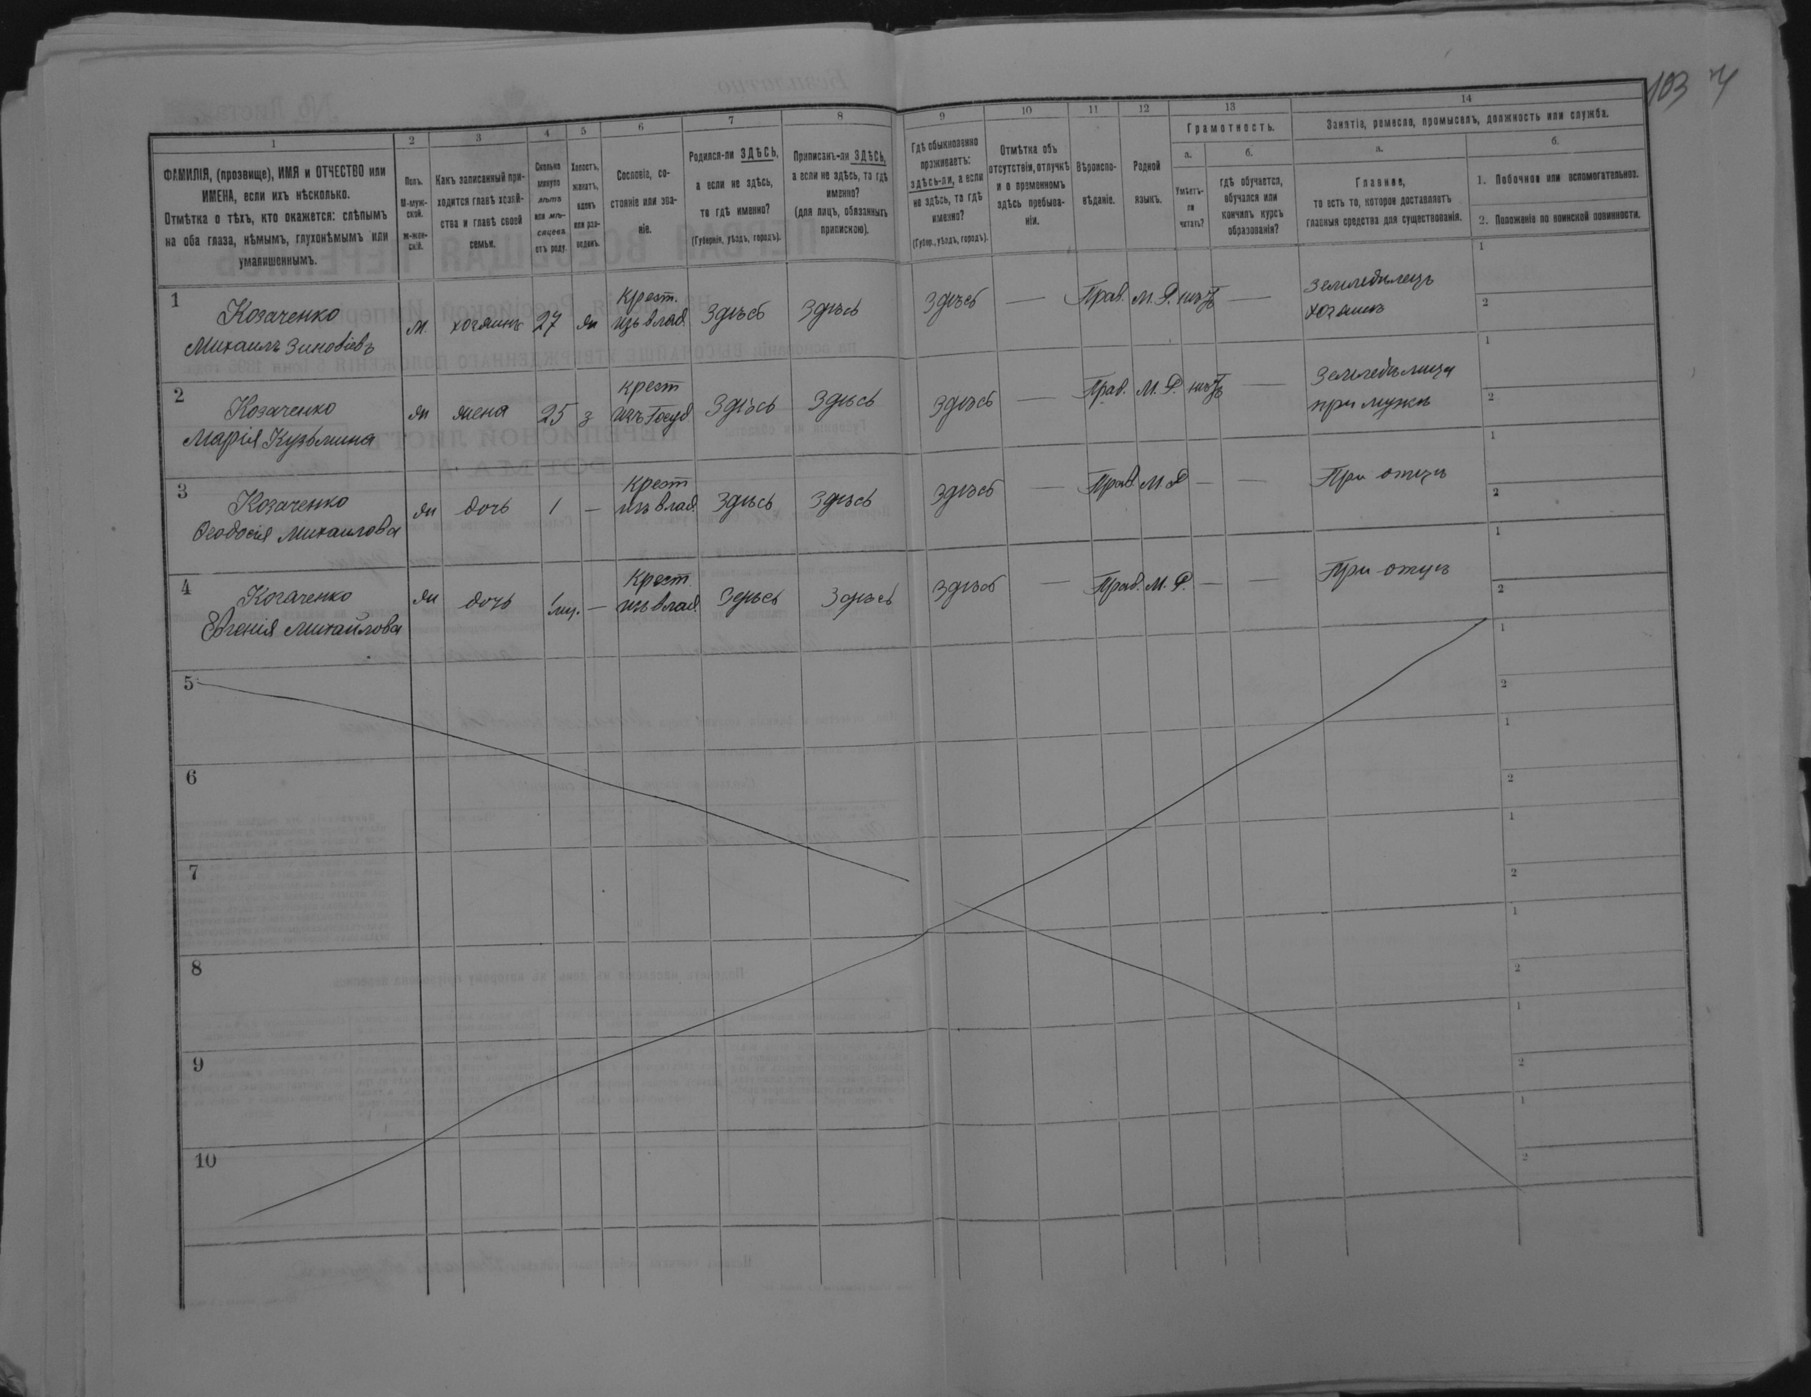 103
1
2
3
4
5
6
7
8
9
10
11
12
13
14
ФАМИЛІЯ, (прозвище), ИМЯ и ОТЧЕСТВО или
ИМЕНА, если ихъ нѣсколько.
Отмѣтка о тѣхъ, кто окажется: слѣпымъ
на оба глаза, нѣмымъ, глухонѣмымъ или
умалишеннымъ.
Полъ.
М-муж-
ской.
Ж-жен-
скій.
Какъ записанный при-
ходится главѣ хозяй-
ства и главѣ своей
семьи.
Сколько
минуло
лѣтъ
или мѣ-
сяцевъ
отъ роду.
Холостъ,
женатъ,
вдовъ
или раз-
веденъ.
Сословіе, со-
стояніе или зва-
ніе.
Родился-ли ЗДѢСЬ,
а если не здѣсь,
то гдѣ именно?
(Губернія, уѣздъ, городъ).
Приписанъ-ли ЗДѢСЬ,
а если не здѣсь, то гдѣ
именно?
(для лицъ, обязанныхъ
припискою).
Гдѣ обыкновенно
проживаетъ:
здѣсь-ли, а если
не здѣсь, то гдѣ
именно?
(Губер., уѣздъ, городъ).
Отмѣтка объ
отсутствіи, отлучкѣ
и о временномъ
здѣсь пребыва-
ніи.
Вѣроиспо-
вѣданіе.
Родной
языкъ.
Грамотность.
а.
Умѣетъ-
ли
читать?
б.
гдѣ обучается,
обучался или
кончилъ курсъ
образованія?
Занятіе, ремесло, промыселъ, должность или служба.
а.
Главное,
то есть то, которое доставляетъ
главныя средства для существованія.
б.
1. Побочное или вспомогательное.
2. Положеніе по воинской повинности.
1
Козаченко
Михаилъ Зиновіевъ
м.
хозяинъ
27
ж
Крест.
изъ влад.
Здѣсь
Здѣсь
Здѣсь
—
Прав.
М. Р.
нѣтъ
—
Земледѣлецъ
хозяинъ
1
2
2
Козаченко
Марія Кузьмина
ж
жена
25
з
крест
изъ Госуд.
Здѣсь
Здѣсь
Здѣсь
—
Прав.
М. Р.
нѣтъ
—
Земледѣлица
при мужѣ
1
2
3
Козаченко
Ѳеодосія Михаилова
ж
дочь
1
—
Крест
изъ влад.
Здѣсь
Здѣсь
Здѣсь
—
Прав.
М. Р.
—
—
При отцѣ
1
2
4
Козаченко
Евгенія Михайлова
ж
дочь
1 мц.
—
Крест
изъ влад.
Здѣсь
Здѣсь
Здѣсь
—
Прав.
М. Р.
—
—
При отцѣ
1
2
5
1
2
6
1
2
7
1
2
8
1
2
9
1
2
10
1
2